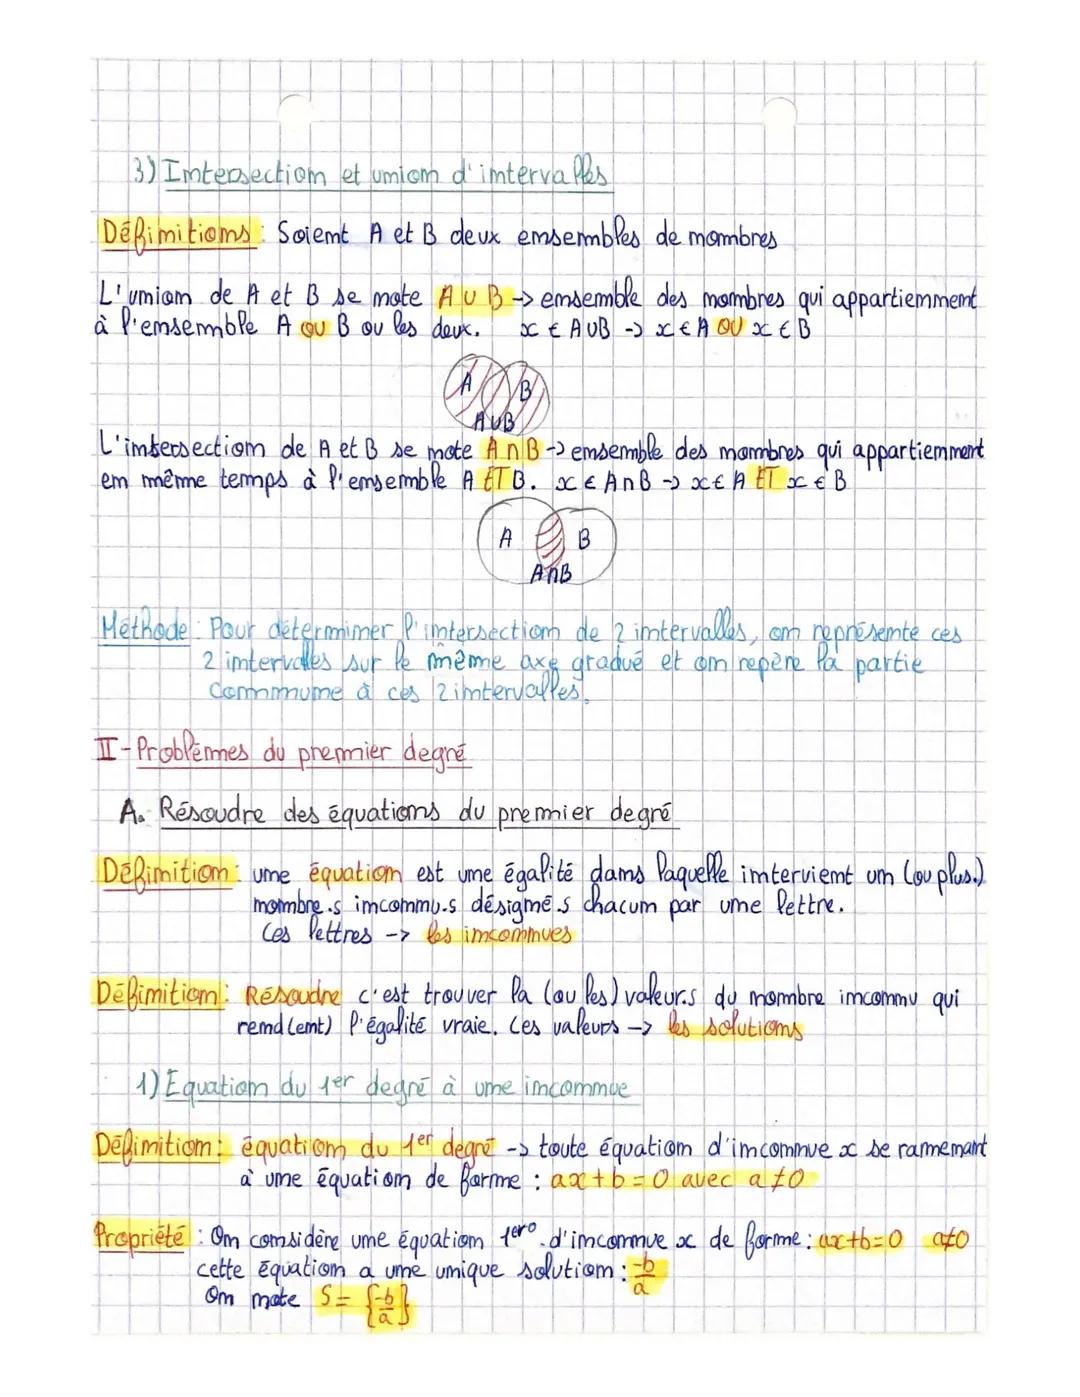 3) Intersection et union d'intervalles
Définitions : Soient A et B deux ensembles de nombres
L'union de A et B se note A ∪ B -> ensemble des nombres qui appartiennent
à l'ensemble A ou B ou les deux. x ∈ A∪B -> x ∈ A OU x ∈ B
A B
A∪B
L'intersection de A et B se note A ∩ B -> ensemble des nombres qui appartiennent
en même temps à l'ensemble A ET B. x ∈ A∩B -> x ∈ A ET x ∈ B
A B
A∩B
Méthode : Pour déterminer l'intersection de 2 intervalles, on représente ces
2 intervalles sur le même axe gradué et on repère la partie
commune à ces 2 intervalles.
II - Problèmes du premier degré
A. Résoudre des équations du premier degré
Définition : une équation est une égalité dans laquelle intervient un (ou plus.)
nombre.s inconnu.s désigné.s chacun par une lettre.
Ces lettres -> les inconnues
Définition : Résoudre c'est trouver la (ou les) valeur.s du nombre inconnu qui
rend(ent) l'égalité vraie. Ces valeurs -> les solutions
1) Equation du 1er degré à une inconnue
Définition : équation du 1er degré -> toute équation d'inconnue x se ramenant
à une équation de forme : ax + b = 0 avec a ≠ 0
Propriété : On considère une équation 1er°. d'inconnue x de forme : ax+b=0 a≠0
cette équation a une unique solution : -b/a
On note S = {-b/a}